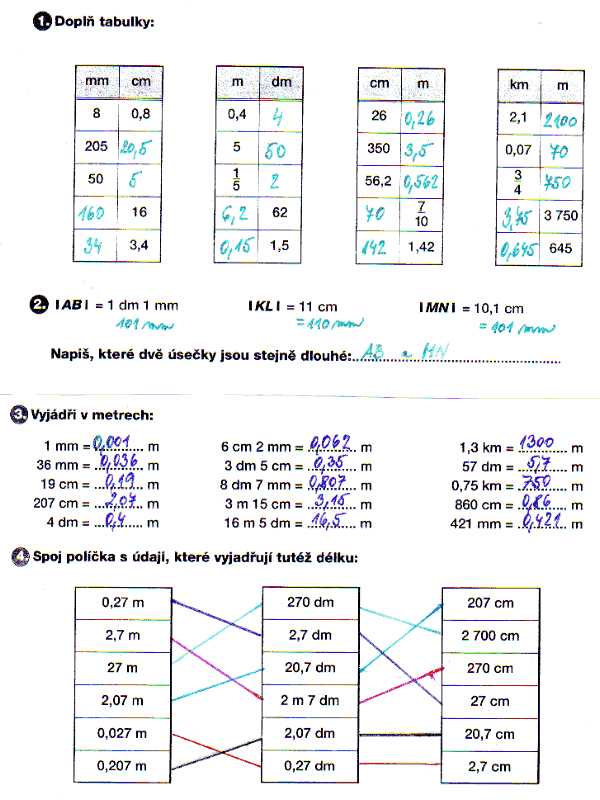 1. Doplň tabulky:
mm cm m dm cm m km m
8 0,8 0,4 4 26 0,26 2,1 2100
205 20,5 5 50 350 3,5 0,07 70
50 5 1/5 2 56,2 0,562 3/4 750
160 16 6,2 62 70 7/10 3,75 3 750
34 3,4 0,15 1,5 142 1,42 0,645 645
2. |AB| = 1 dm 1 mm |KL| = 11 cm |MN| = 10,1 cm
101 mm = 110 mm = 101 mm
Napiš, které dvě úsečky jsou stejně dlouhé: AB a MN
3. Vyjádři v metrech:
1 mm = 0,001 m 6 cm 2 mm = 0,062 m 1,3 km = 1300 m
36 mm = 0,036 m 3 dm 5 cm = 0,35 m 57 dm = 5,7 m
19 cm = 0,19 m 8 dm 7 mm = 0,807 m 0,75 km = 750 m
207 cm = 2,07 m 3 m 15 cm = 3,15 m 860 cm = 0,86 m
4 dm = 0,4 m 16 m 5 dm = 16,5 m 421 mm = 0,421 m
4. Spoj políčka s údaji, které vyjadřují tutéž délku:
0,27 m 270 dm 207 cm
2,7 m 2,7 dm 2 700 cm
27 m 20,7 dm 270 cm
2,07 m 2 m 7 dm 27 cm
0,027 m 2,07 dm 20,7 cm
0,207 m 0,27 dm 2,7 cm